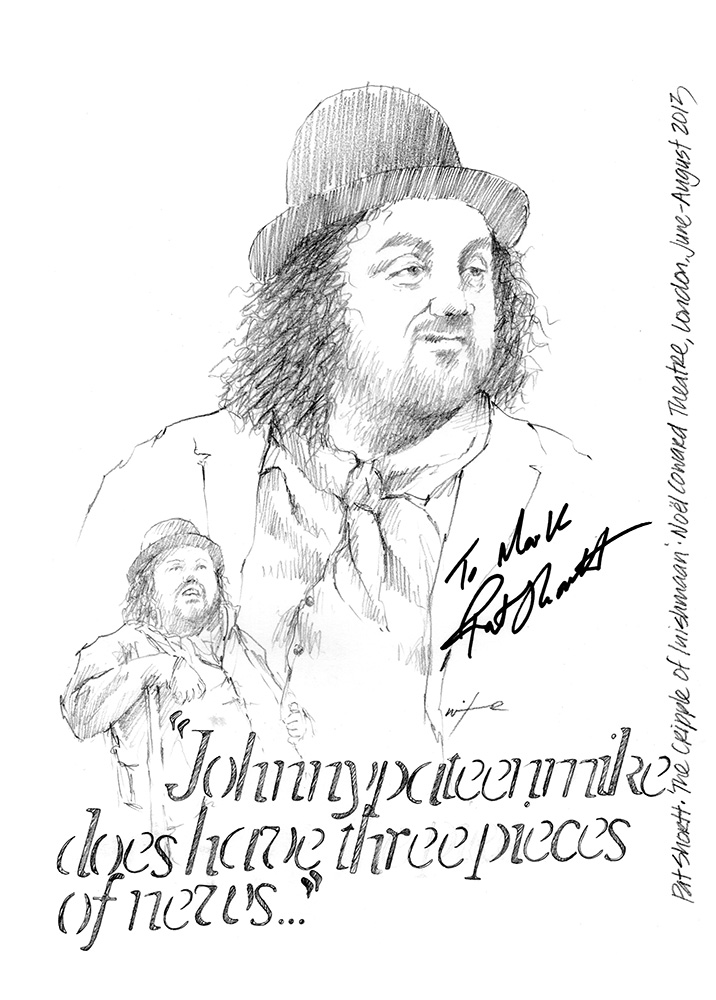 To Mark
Pat Shortt
"Johnnypateenmike
does have three pieces
of news..."
Pat Shortt · The Cripple of Inishmaan · Noël Coward Theatre, London. June-August 2013